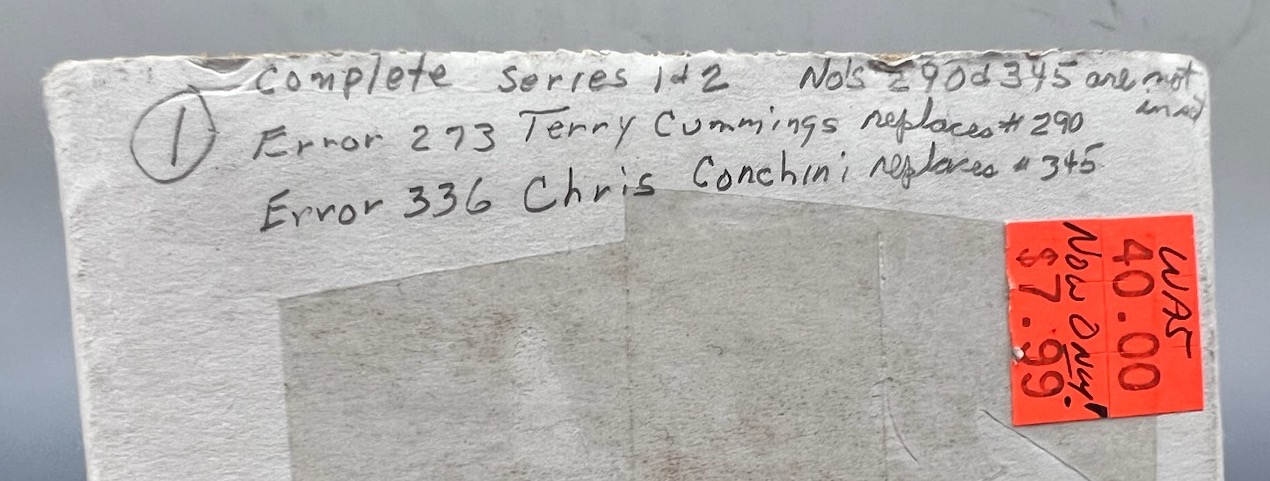 Complete Series 1 & 2 No's 290 & 345 are not
in set
① Error 273 Terry Cummings replaces # 290
Error 336 Chris Conchini replaces # 345
WAS
40.00
NOW ONLY!
$7.99